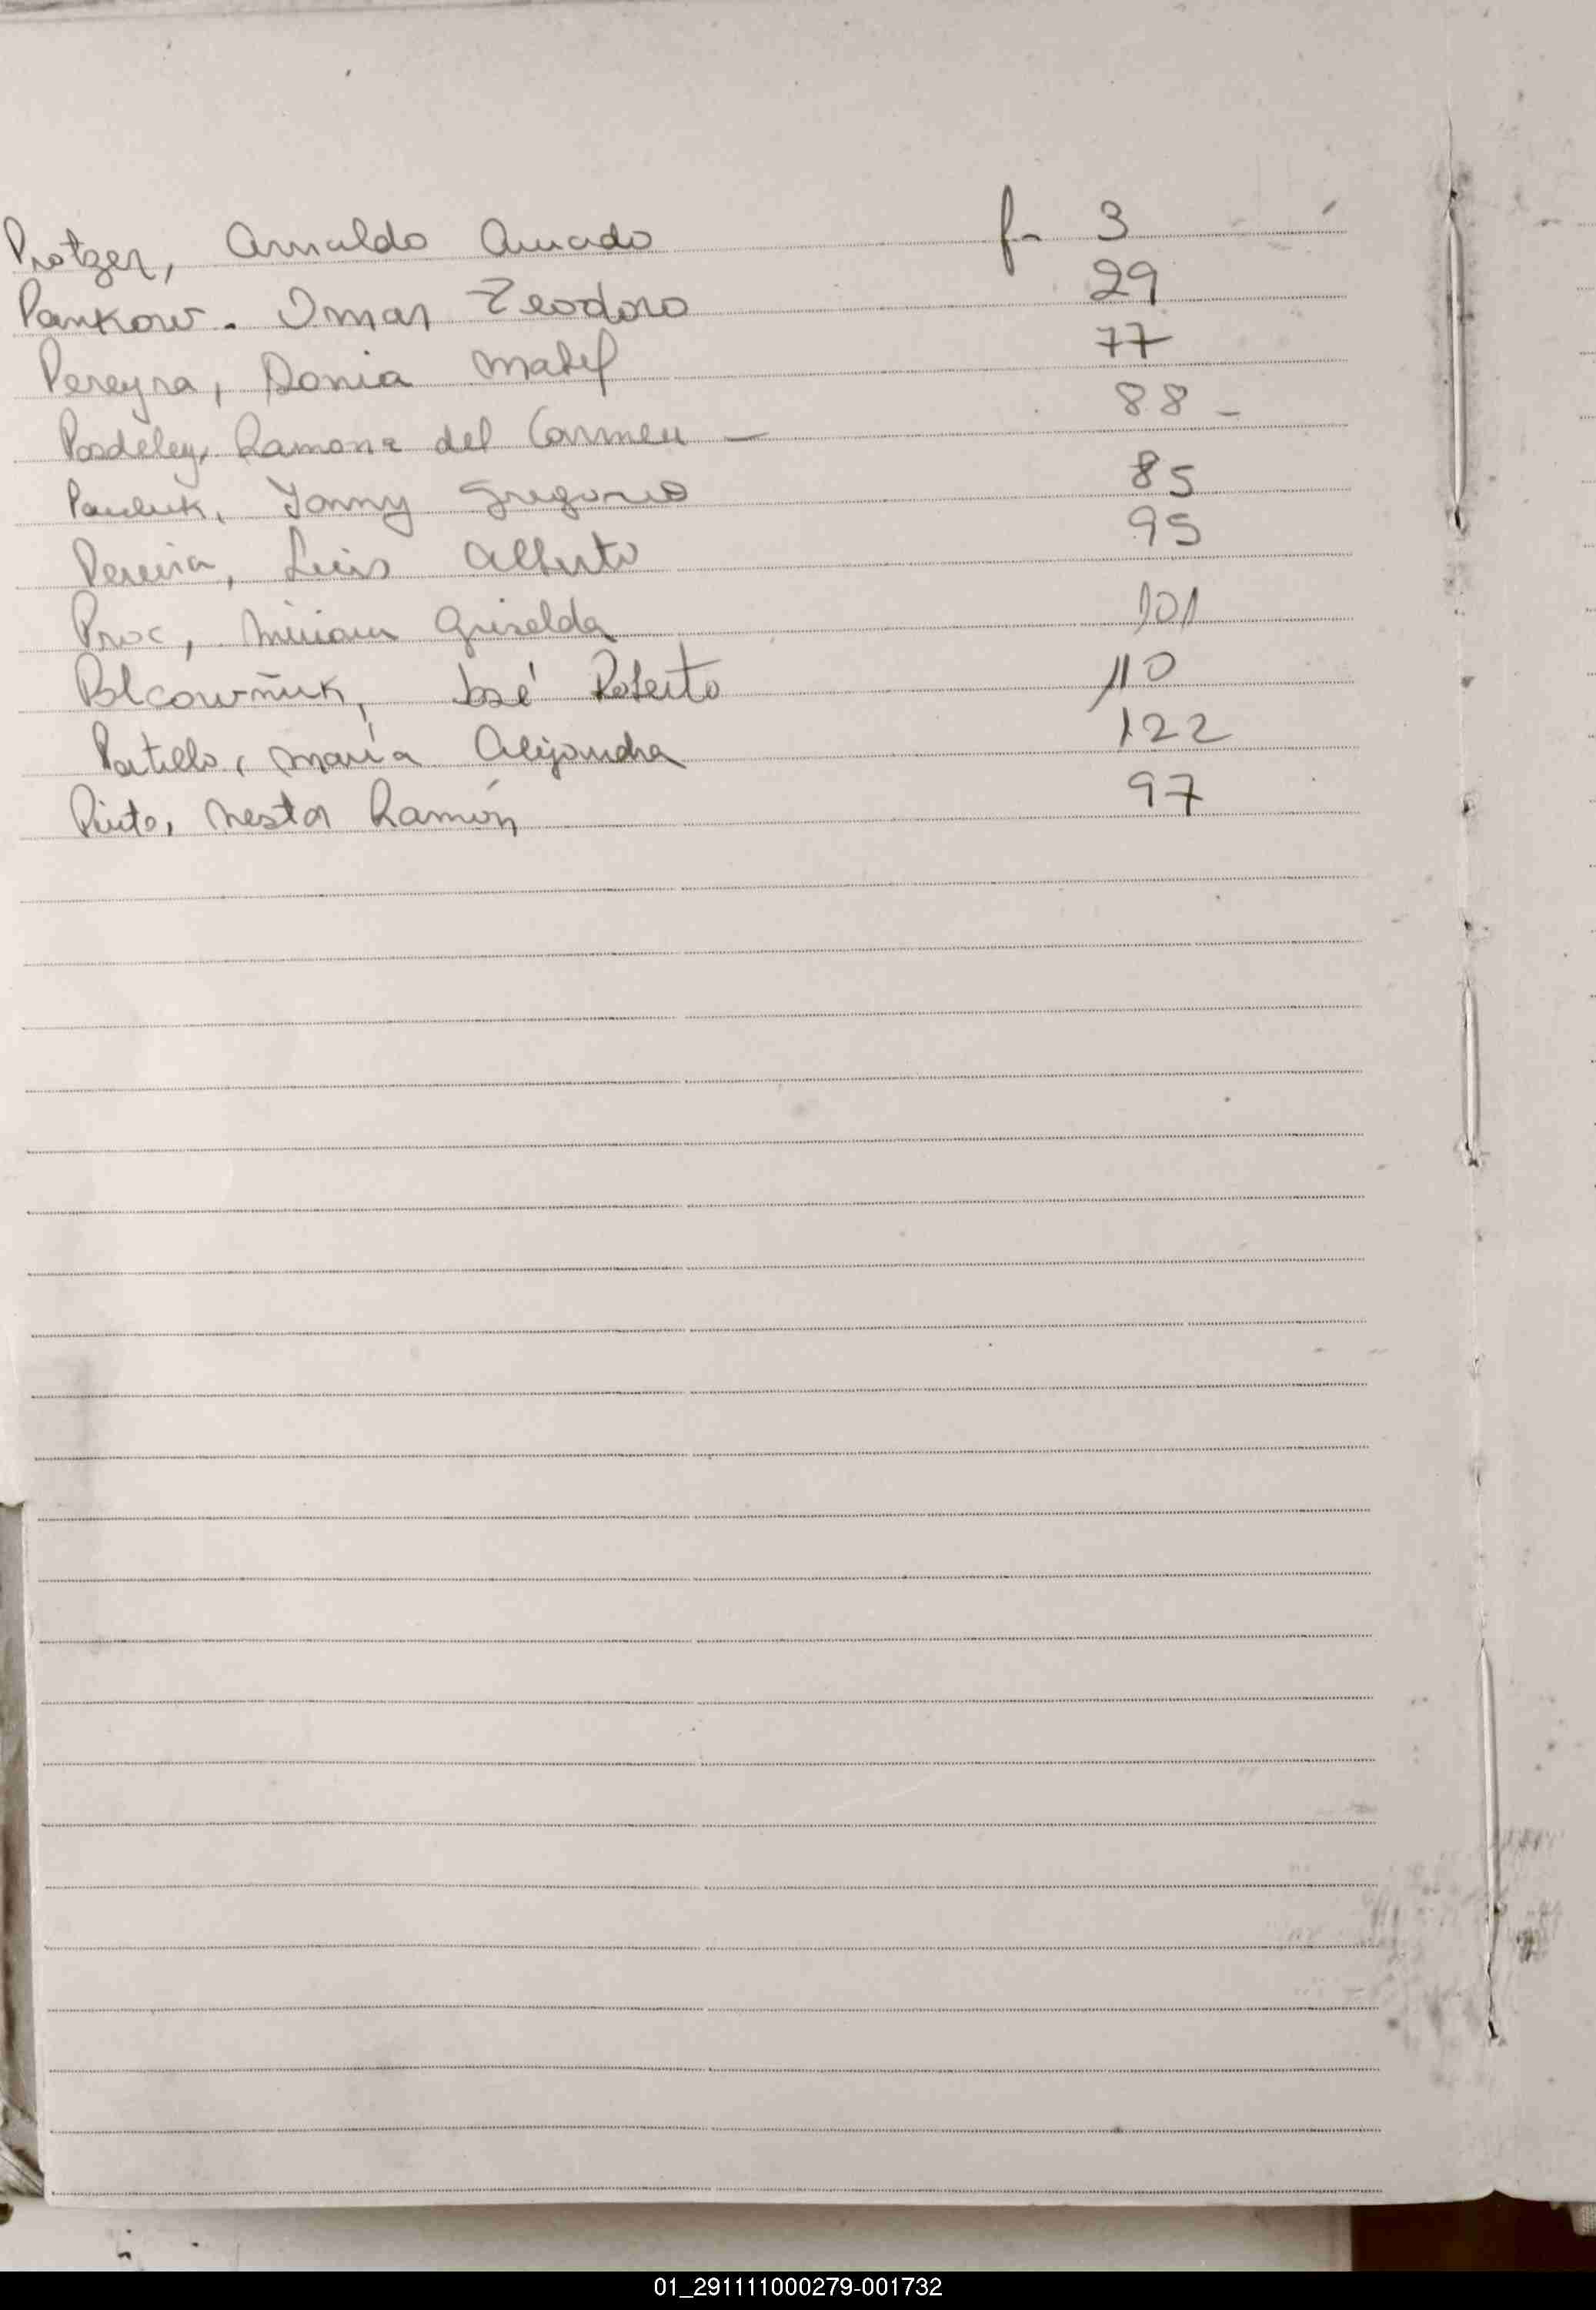 Protzer, Arnaldo Amado f- 3
Pankow. Omar Teodoro 29
Pereyra, Mabel 77
Ramona del Carmen - 88 -
Gregorio 85
Pereira, Luis Alberto 95
Proc, Miriam Griselda 101
Polcowñuk, José Roberto 110
Portillo, María Alejandra 122
Pinto, Nestor Ramón 97
01_291111000279-001732